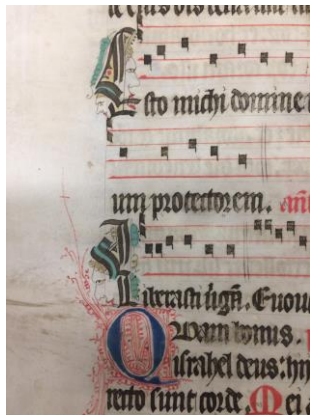 Esto michi domine
um protectorem. añ
Liberasti ũgã. Euou
Quam bonus.
israhel deus: hiis
recto sunt corde. Mei